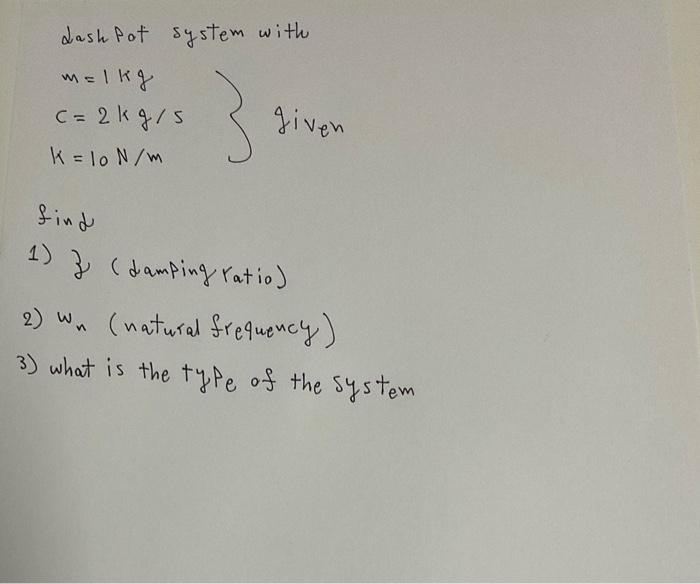 dashpot system with
m = 1 kg
c = 2 kg/s } given
k = 10 N/m
find
1) ζ (damping ratio)
2) wn (natural frequency)
3) what is the type of the system